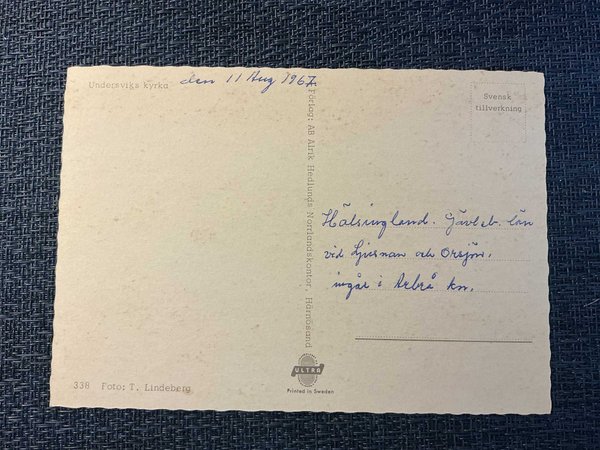 Undersviks kyrka
den 11 Aug 1967.
Förlag: AB Alrik Hedlunds Norrlandskontor, Härnösand
Svensk
tillverkning
Hälsingland. Gävleb. län
vid Ljusnan och Orsjön.
ingår i Arbrå kn.
338 Foto: T. Lindeberg
ULTRA
Printed in Sweden